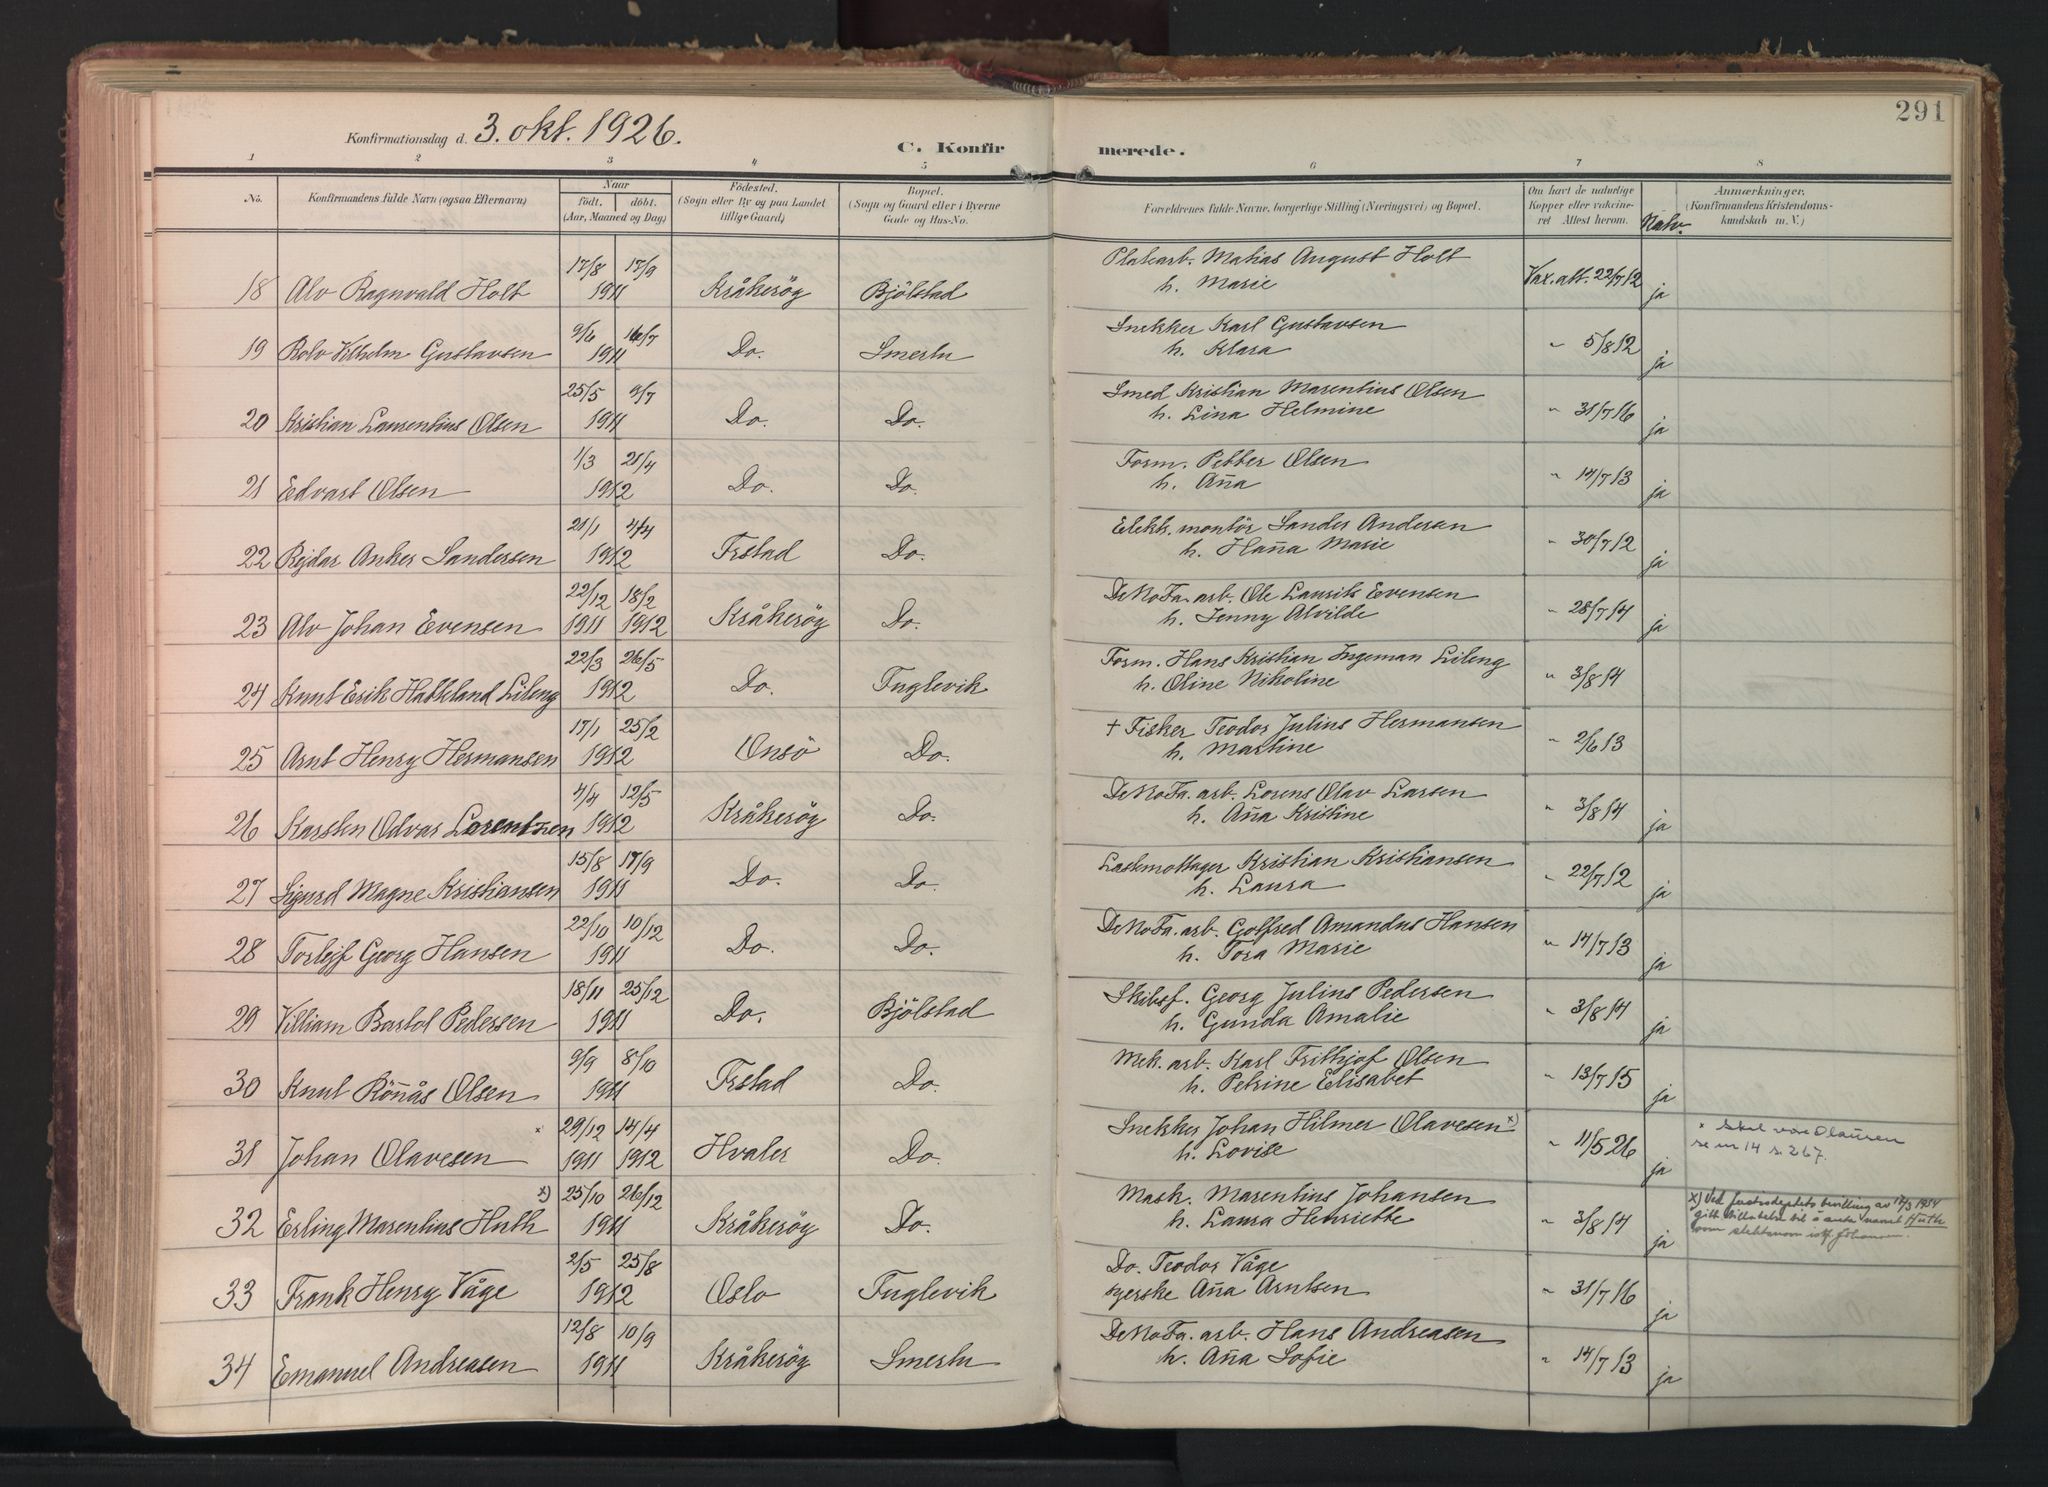 291
Konfirmationsdag d. 3. okt. 1926.
C. Konfirmerede.
1 2 3 4 5 6 7 8
No. Konfirmandens fulde Navn (ogsaa Efternavn) Naar født. døbt. (Aar, Maaned og Dag) Födested. (Sogn eller By og paa Landet tillige Gaard) Bopæl. (Sogn og Gaard eller i Byerne Gade og Hus-No. Forældrenes fulde Navne, borgerlige Stilling (Næringsvei) og Bopæl. Om havt de naturlige Kopper eller vakcineret Attest herom. Natv. Anmærkninger. (Konfirmandens Kristendomskundskab m. V.)
18 Alv Ragnvald Holt 17/8 17/9 1911 Kråkeröy Bjölstad Platearb. Matias August Holt h. Marie Vax. att. 22/7 12 ja
19 Rolv Vilhelm Gustavsen 9/6 16/7 1911 Do. Smertu Snekker Karl Gustavsen h. Klara " 5/8 12 ja
20 Kristian Laurentius Olsen 25/5 9/7 1911 Do. Do. Smed Kristian Marentius Olsen h. Lina Helmine " 31/7 16 ja
21 Edvart Olsen 1/3 21/4 1912 Do. Do. Form. Petter Olsen h. Aña " 14/7 13 ja
22 Rejdar Anker Sandersen 21/1 4/4 1912 Frstad Do. Elekt. montör Sander Andersen h. Haña Marie " 30/7 12 ja
23 Alv Johan Evensen 22/12 1911 18/2 1912 Kråkeröy Do. DeNoFa. arb. Ole Laurits Evensen h. Jenny Alvilde " 28/7 14 ja
24 Knut Erik Hatteland Lileng 22/3 26/5 1912 Do. Fuglevik Form. Hans Kristian Ingeman Lileng h. Oline Nikoline " 3/8 14
25 Arnt Henry Hermansen 17/1 25/2 1912 Onsö Do. † Fisker Teodor Julius Hermansen h. Martine " 2/6 13
26 Karsten Odvar Lorentzen 4/4 12/5 1912 Kråkeröy Do. DeNoFa. arb. Lorens Olav Larsen h. Aña Kristine " 3/8 14 ja
27 Sigurd Magne Kristiansen 15/8 17/9 1911 Do. Do. Lastemottager Kristian Kristiansen h. Laura " 22/7 12 ja
28 Torlejf Georg Hansen 22/10 10/12 1911 Do. Do. DeNoFa. arb. Golfred Amandus Hansen h. Tora Marie " 14/7 13 ja
29 Villiam Bartol Pedersen 18/11 25/12 1911 Do. Bjölstad Skibsf. Georg Julius Pedersen h. Gunda Amalie " 3/8 14 ja
30 Knut Röñås Olsen 9/9 8/10 1911 Frstad Do. Mek. arb. Karl Frithjof Olsen h. Petrine Elisabet " 13/7 15 ja
31 Johan Olavesen x 29/12 1911 14/4 1912 Hvaler Do. Snekker Johan Hilmer Olavesen x) h. Lovise " 11/5 26 ja x Skal være Olaussen se m 14 s. 267.
32 Erling Marentius Huth x) 25/10 26/12 1911 Kråkeröy Do. Mask. Marentius Johansen h. Laura Henriette " 3/8 14 ja x) Ved justisdeptets bevilling av 17/3 1954 gitt tillatelse til å anta navnet Huth som slektsnavn istf. Johansen.
33 Frank Henry Våge 2/5 25/8 1912 Oslo Fuglevik Do. Teodor Våge syerske Aña Arntsen " 31/7 16 ja
34 Emanuel Andreasen 12/8 10/9 1911 Kråkeröy Smertu DeNoFa. arb. Hans Andreasen h. Aña Sofie " 14/7 13 ja